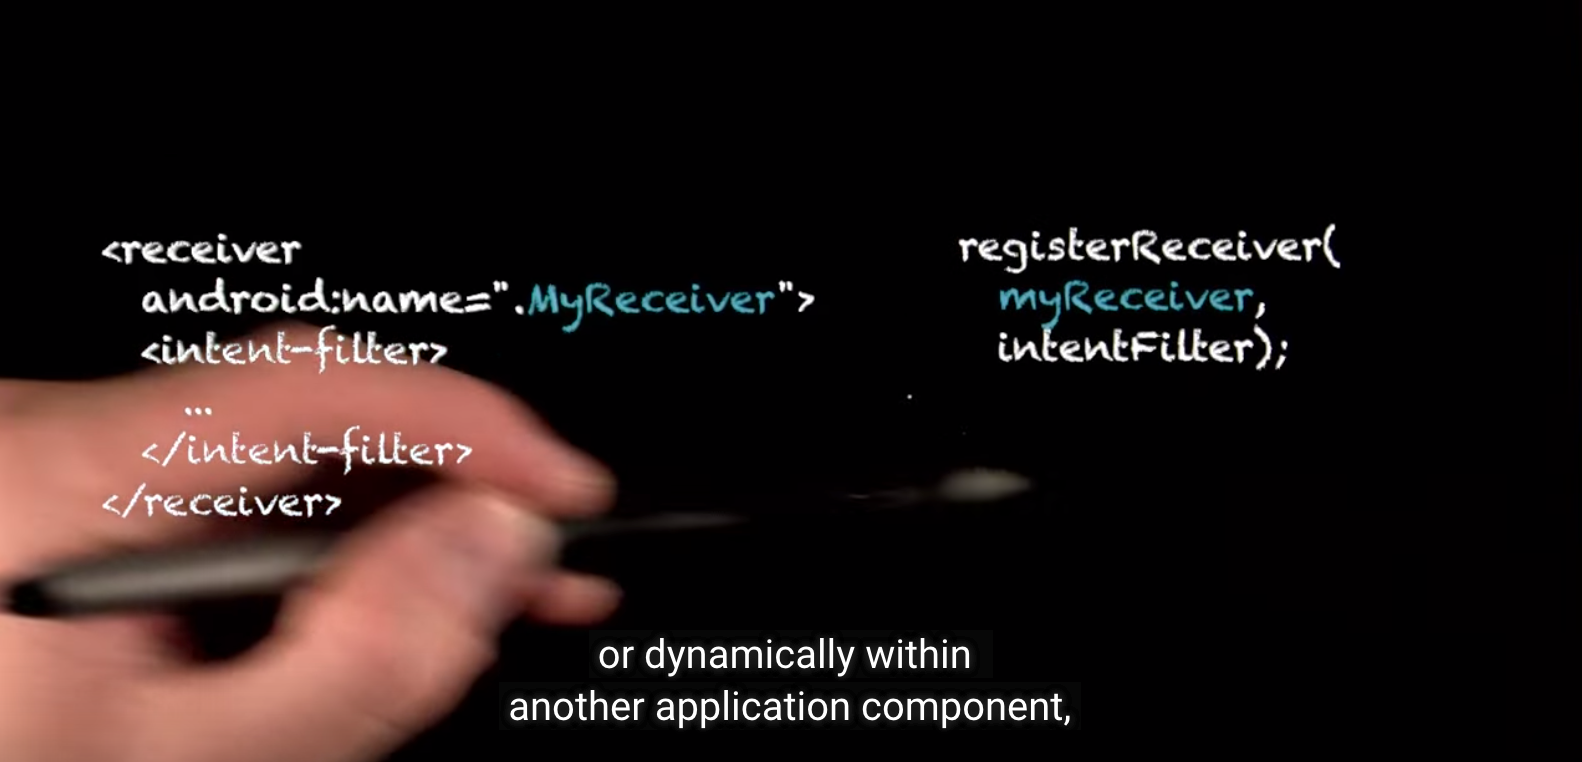 <receiver
android:name=".MyReceiver">
<intent-filter>
...
</intent-filter>
</receiver>
registerReceiver(
myReceiver,
intentFilter);
or dynamically within
another application component,